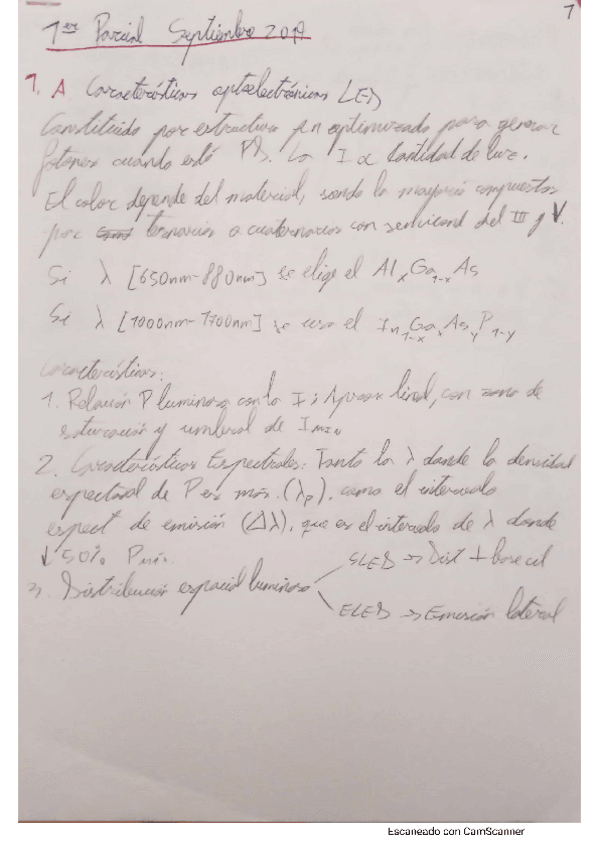 1
1er Parcial Septiembre 2017
1. A Características optoelectrónicas LED
Constituido por estructura pn optimizada para generar
fotones cuando esté PD. La I α Cantidad de luz.
El color depende del material, siendo la mayoría compuestos
por ternarios o cuaternarios con semicond del III y V.
Si λ [650nm-880nm] se elige el AlxGa1-xAs
Si λ [1000nm-1700nm] se usa el In1-xGaxAsyP1-y
Características:
1. Relación P luminosa con la I: Aprox lineal, con zona de
saturación y umbral de IMIN
2. Características Espectrales: Tanto la λ donde la densidad
espectral de P es máx. (λp), como el intervalo
espect de emisión (Δλ), que es el intervalo de λ donde
↓ 50% Pmáx.
3. Distribución espacial luminosa
SLED → Dist
ELED → Emisión lateral
Escaneado con CamScanner